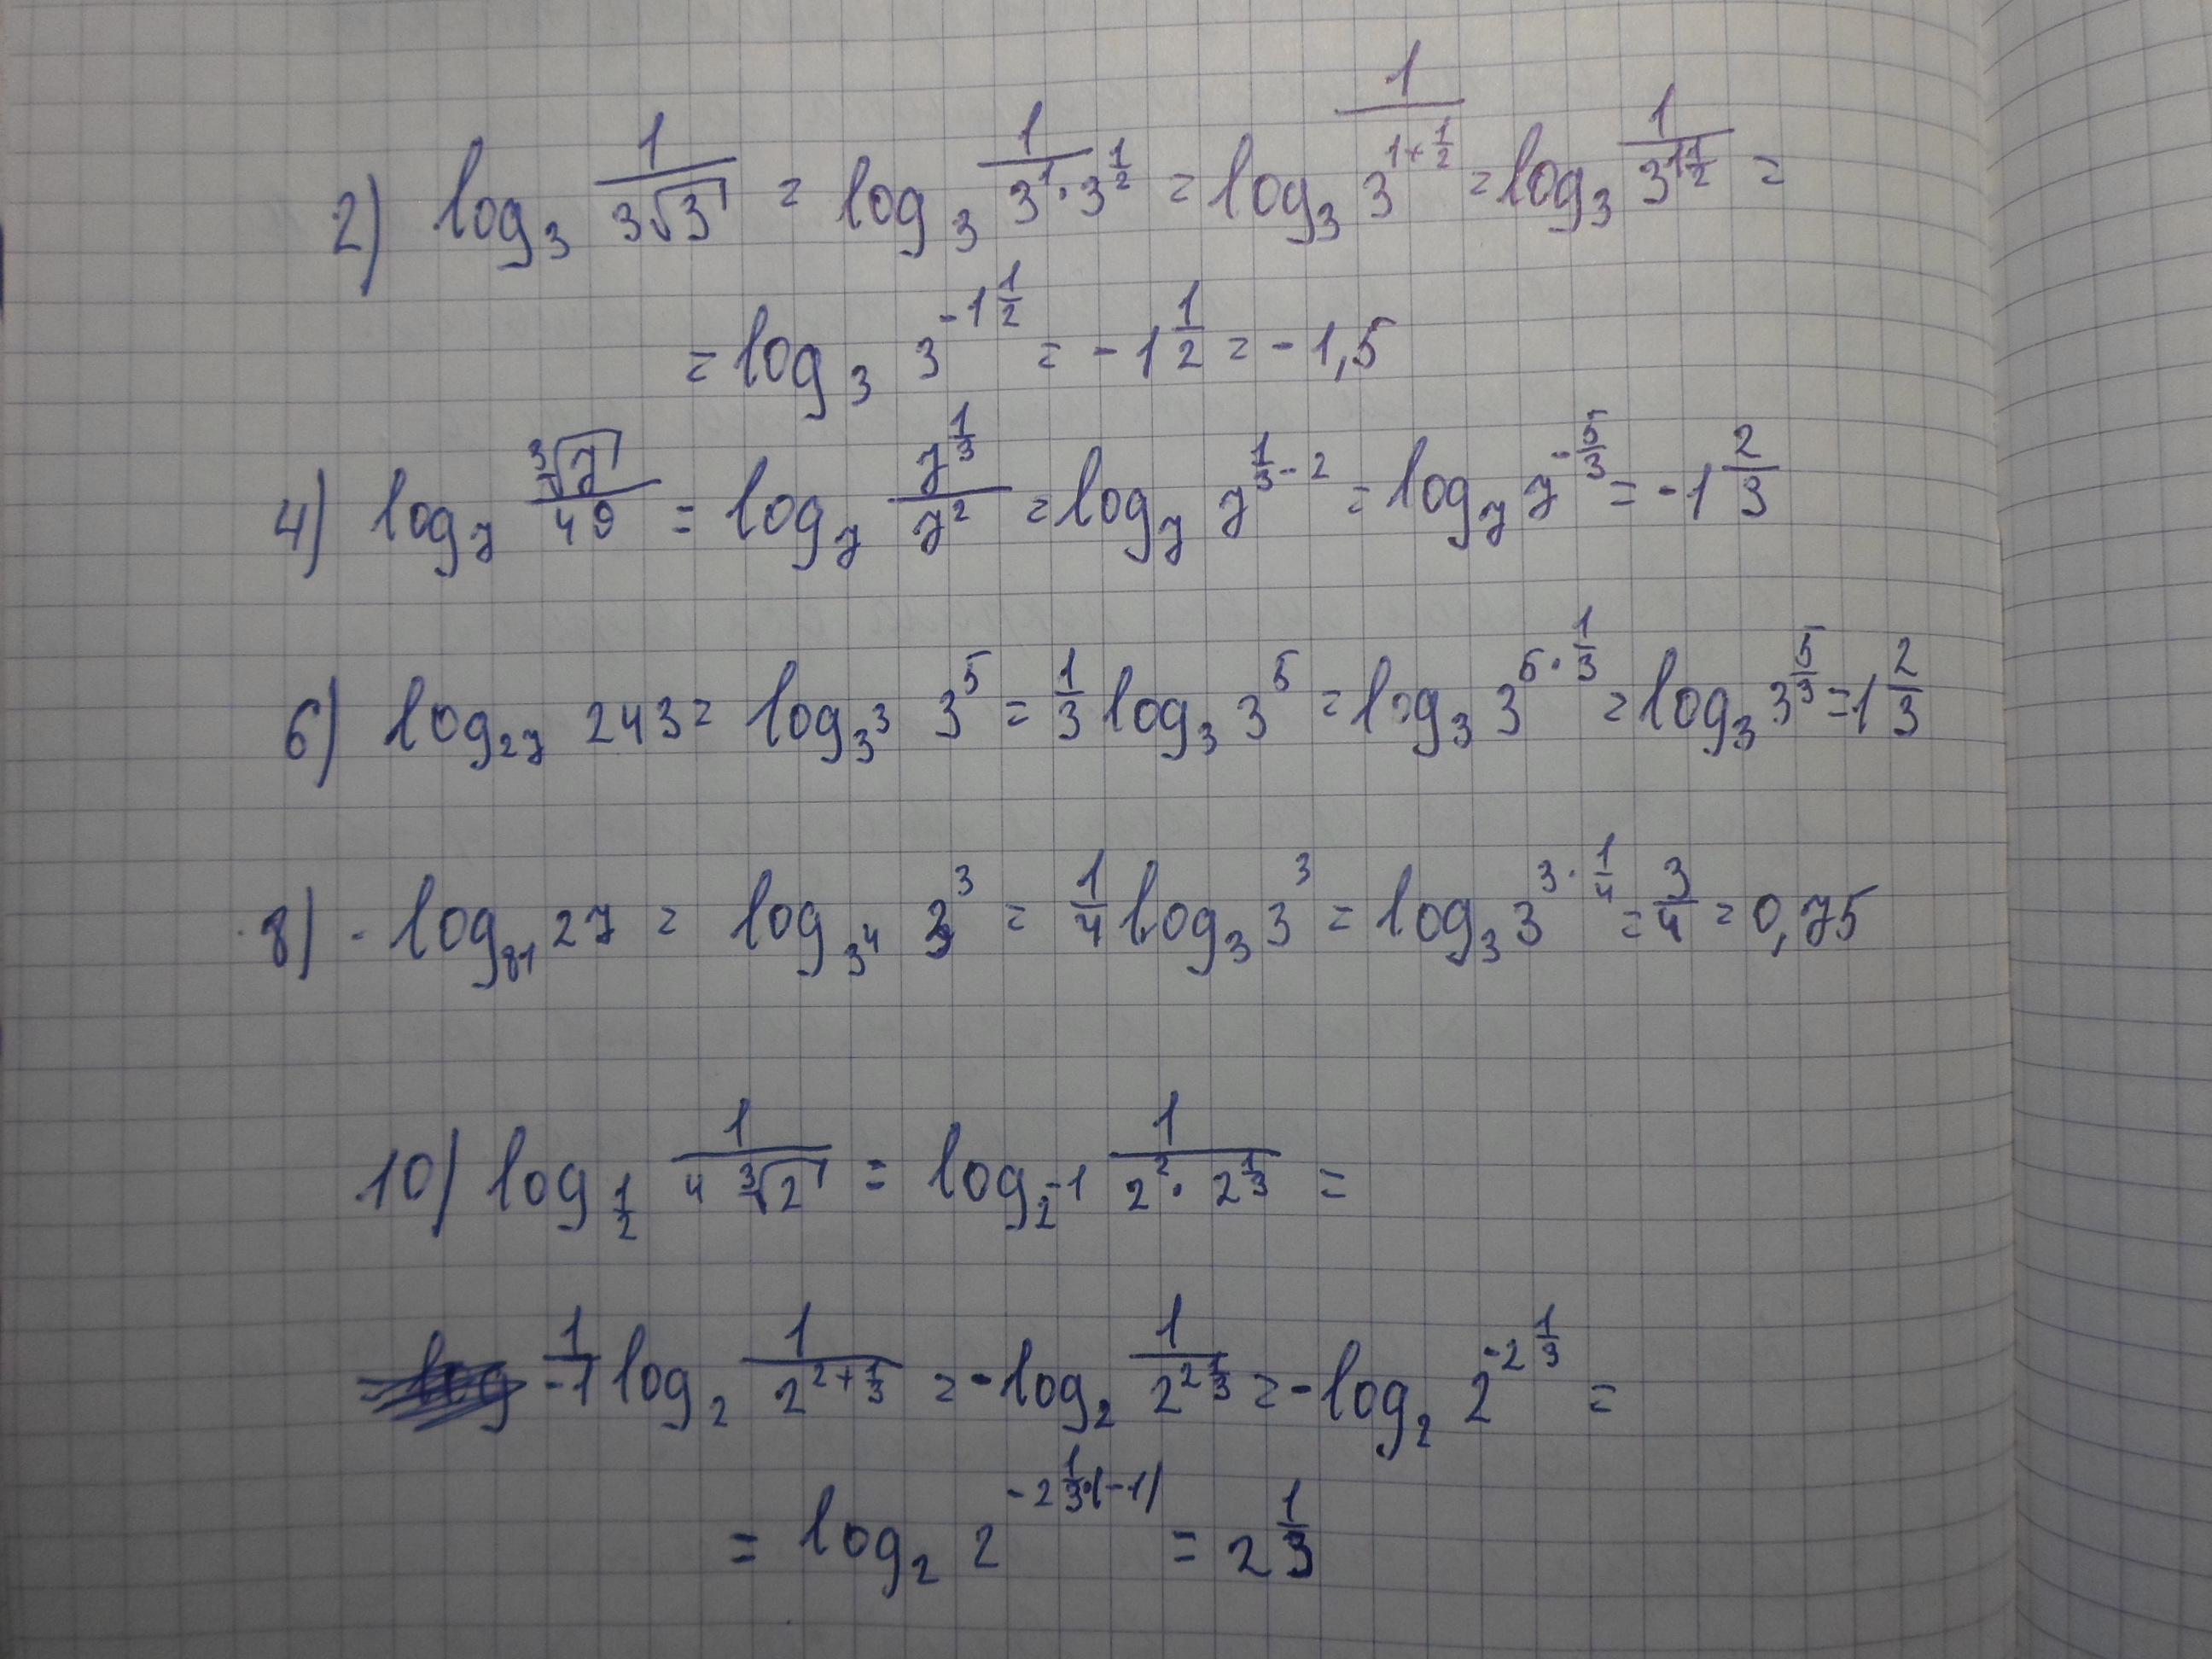 2) log₃ 1/(3√3) = log₃ 1/(3¹·3^(1/2)) = log₃ 1/3^(1+1/2) = log₃ 1/3^(1 1/2) =
= log₃ 3^(-1 1/2) = -1 1/2 = -1,5
4) log₇ ∛7/49 = log₇ 7^(1/3)/7² = log₇ 7^(1/3-2) = log₇ 7^(-5/3) = -1 2/3
6) log₂₇ 243 = log_(3³) 3⁵ = 1/3 log₃ 3⁵ = log₃ 3^(5·1/3) = log₃ 3^(5/3) = 1 2/3
8) log₈₁ 27 = log_(3⁴) 3³ = 1/4 log₃ 3³ = log₃ 3^(3·1/4) = 3/4 = 0,75
10) log_(1/2) 1/(4 ∛2) = log_(2^-1) 1/(2²·2^(1/3)) =
1/-1 log₂ 1/2^(2+1/3) = -log₂ 1/2^(2 1/3) = -log₂ 2^(-2 1/3) =
= log₂ 2^(-2 1/3·(-1)) = 2 1/3